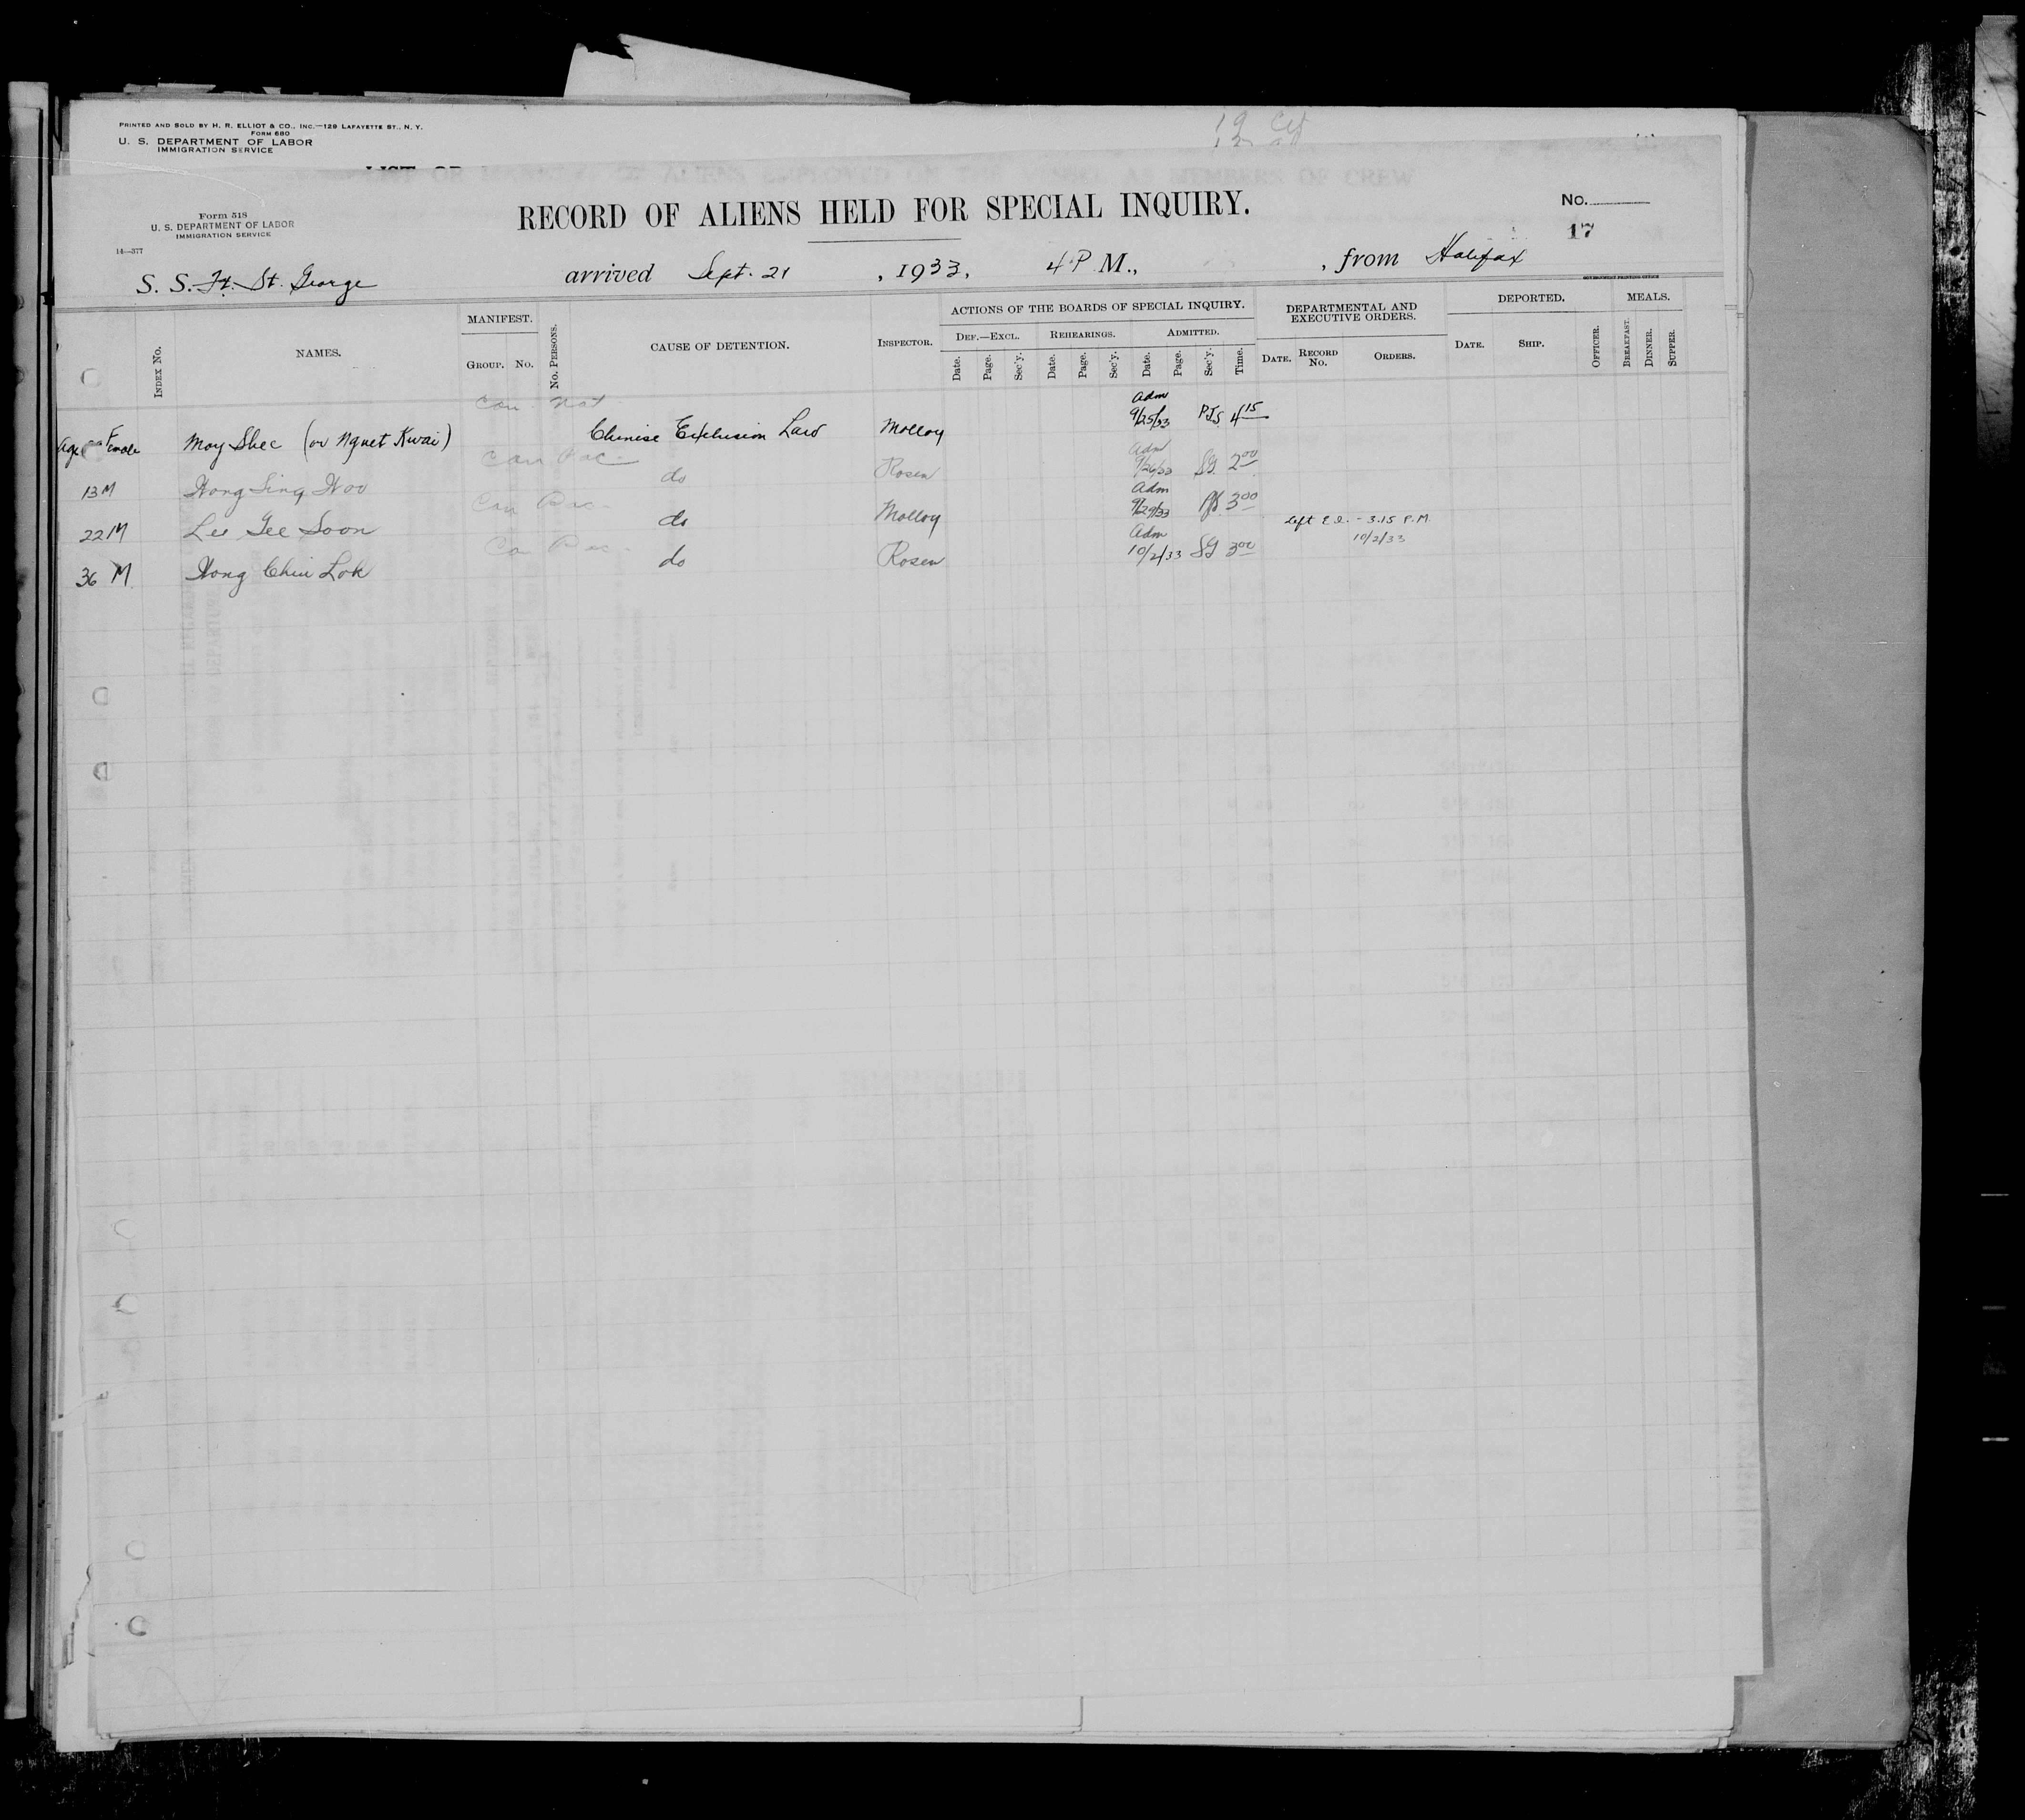 PRINTED AND SOLD BY H. R. ELLIOT & CO., INC.—129 LAFAYETTE ST., N. Y.
FORM 680
U. S. DEPARTMENT OF LABOR
IMMIGRATION SERVICE
Form 518
U. S. DEPARTMENT OF LABOR
IMMIGRATION SERVICE
14—377
RECORD OF ALIENS HELD FOR SPECIAL INQUIRY.
No.
17
S. S. Ft. St. George arrived Sept. 21, 1933, 4 P. M., , from Halifax
GOVERNMENT PRINTING OFFICE
INDEX NO. NAMES. MANIFEST. GROUP. NO. NO. PERSONS. CAUSE OF DETENTION. INSPECTOR. ACTIONS OF THE BOARDS OF SPECIAL INQUIRY. DEF.—EXCL. Date. Page. Sec'y. REHEARINGS. Date. Page. Sec'y. ADMITTED. Date. Page. Sec'y. Time. DEPARTMENTAL AND EXECUTIVE ORDERS. DATE. RECORD NO. ORDERS. DEPORTED. DATE. SHIP. OFFICER. MEALS. BREAKFAST. DINNER. SUPPER.
Can. Nat
Age Female Moy Shee (or Nguet Kwai) Chinese Exclusion Law Molloy Adm 9/25/33 PJS 4 15
Can Pac
13 M Wong Sing Woo do Rosen Adm 9/26/33 SG 2 00
Can Pac
22 M Lee Gee Soon do Molloy Adm 9/29/33 3 00
Can Pac
36 M Wong Chin Lok do Rosen Adm 10/2/33 SG 3 00 Left E. I. - 3.15 P.M. 10/2/33